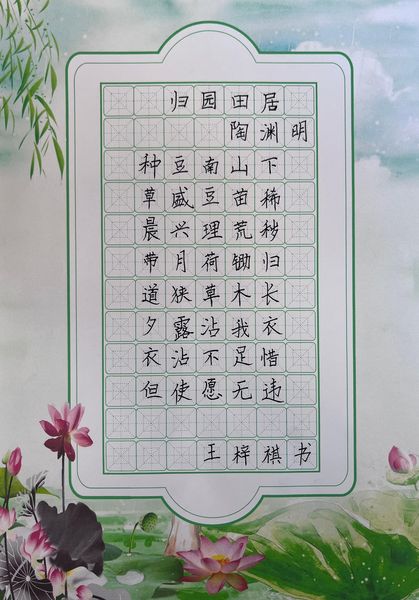 归园田居
陶渊明
种豆南山下
草盛豆苗稀
晨兴理荒秽
带月荷锄归
道狭草木长
夕露沾我衣
衣沾不足惜
但使愿无违
王梓祺书